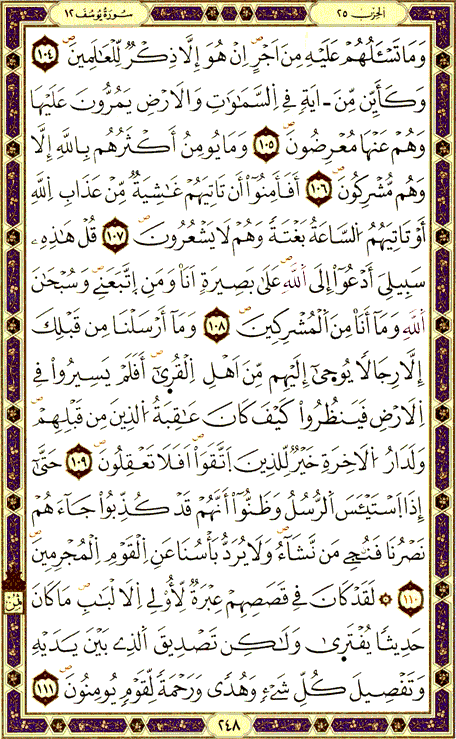 الحزب ٢٥
سُورَةُ يُوسُفَ ١٢
وَمَا تَسْـَٔلُهُمْ عَلَيْهِ مِنَ اَجْرٍ اِنْ هُوَ إِلَّا ذِكْرٌ لِّلْعَٰلَمِينَ ١٠٤
وَكَأَيِّن مِّنَ ـ ايَةٍ فِے اِ۬لسَّمَٰوَٰتِ وَالَارْضِ يَمُرُّونَ عَلَيْهَا
وَهُمْ عَنْهَا مُعْرِضُونَ ١٠٥ وَمَا يُومِنُ أَكْثَرُهُم بِاللَّهِ إِلَّا
وَهُم مُّشْرِكُونَ ١٠٦ أَفَأَمِنُوٓاْ أَن تَاتِيَهُمْ غَٰشِيَةٌ مِّنْ عَذَابِ اِ۬للَّهِ
أَوْ تَاتِيَهُمُ اُ۬لسَّاعَةُ بَغْتَةً وَهُمْ لَا يَشْعُرُونَ ١٠٧ قُلْ هَٰذِهِۦ
سَبِيلِيَ أَدْعُوٓاْ إِلَى اَ۬للَّهِ عَلَىٰ بَصِيرَةٍ اَنَا۠ وَمَنِ اِ۪تَّبَعَنِے وَسُبْحَٰنَ
اَ۬للَّهِ وَمَآ أَنَا۠ مِنَ اَ۬لْمُشْرِكِينَ ١٠٨ وَمَآ أَرْسَلْنَا مِن قَبْلِكَ
إِلَّا رِجَالًا يُوحَىٰٓ إِلَيْهِم مِّنَ اَهْلِ اِ۬لْقُرَىٰٓ أَفَلَمْ يَسِيرُواْ فِے
اِ۬لَارْضِ فَيَنظُرُواْ كَيْفَ كَانَ عَٰقِبَةُ اُ۬لذِينَ مِن قَبْلِهِمْ
وَلَدَارُ اُ۬لَاخِرَةِ خَيْرٌ لِّلذِينَ اَ۪تَّقَوَاْ اَفَلَا تَعْقِلُونَ ١٠٩ حَتَّىٰٓ
إِذَا اَ۪سْتَيْـَٔسَ اَ۬لرُّسُلُ وَظَنُّوٓاْ أَنَّهُمْ قَدْ كُذِّبُواْ جَآءَهُمْ
نَصْرُنَا فَنُنجِے مَن نَّشَآءُ وَلَا يُرَدُّ بَأْسُنَا عَنِ اِ۬لْقَوْمِ اِ۬لْمُجْرِمِينَ
١١٠ لَقَدْ كَانَ فِے قَصَصِهِمْ عِبْرَةٌ لِّأُوْلِے اِ۬لَالْبَٰبِ مَا كَانَ
حَدِيثًا يُفْتَرَىٰ وَلَٰكِن تَصْدِيقَ اَ۬لذِے بَيْنَ يَدَيْهِ
وَتَفْصِيلَ كُلِّ شَےْءٍ وَهُدًى وَرَحْمَةً لِّقَوْمٍ يُومِنُونَ ١١١
٢٤٨